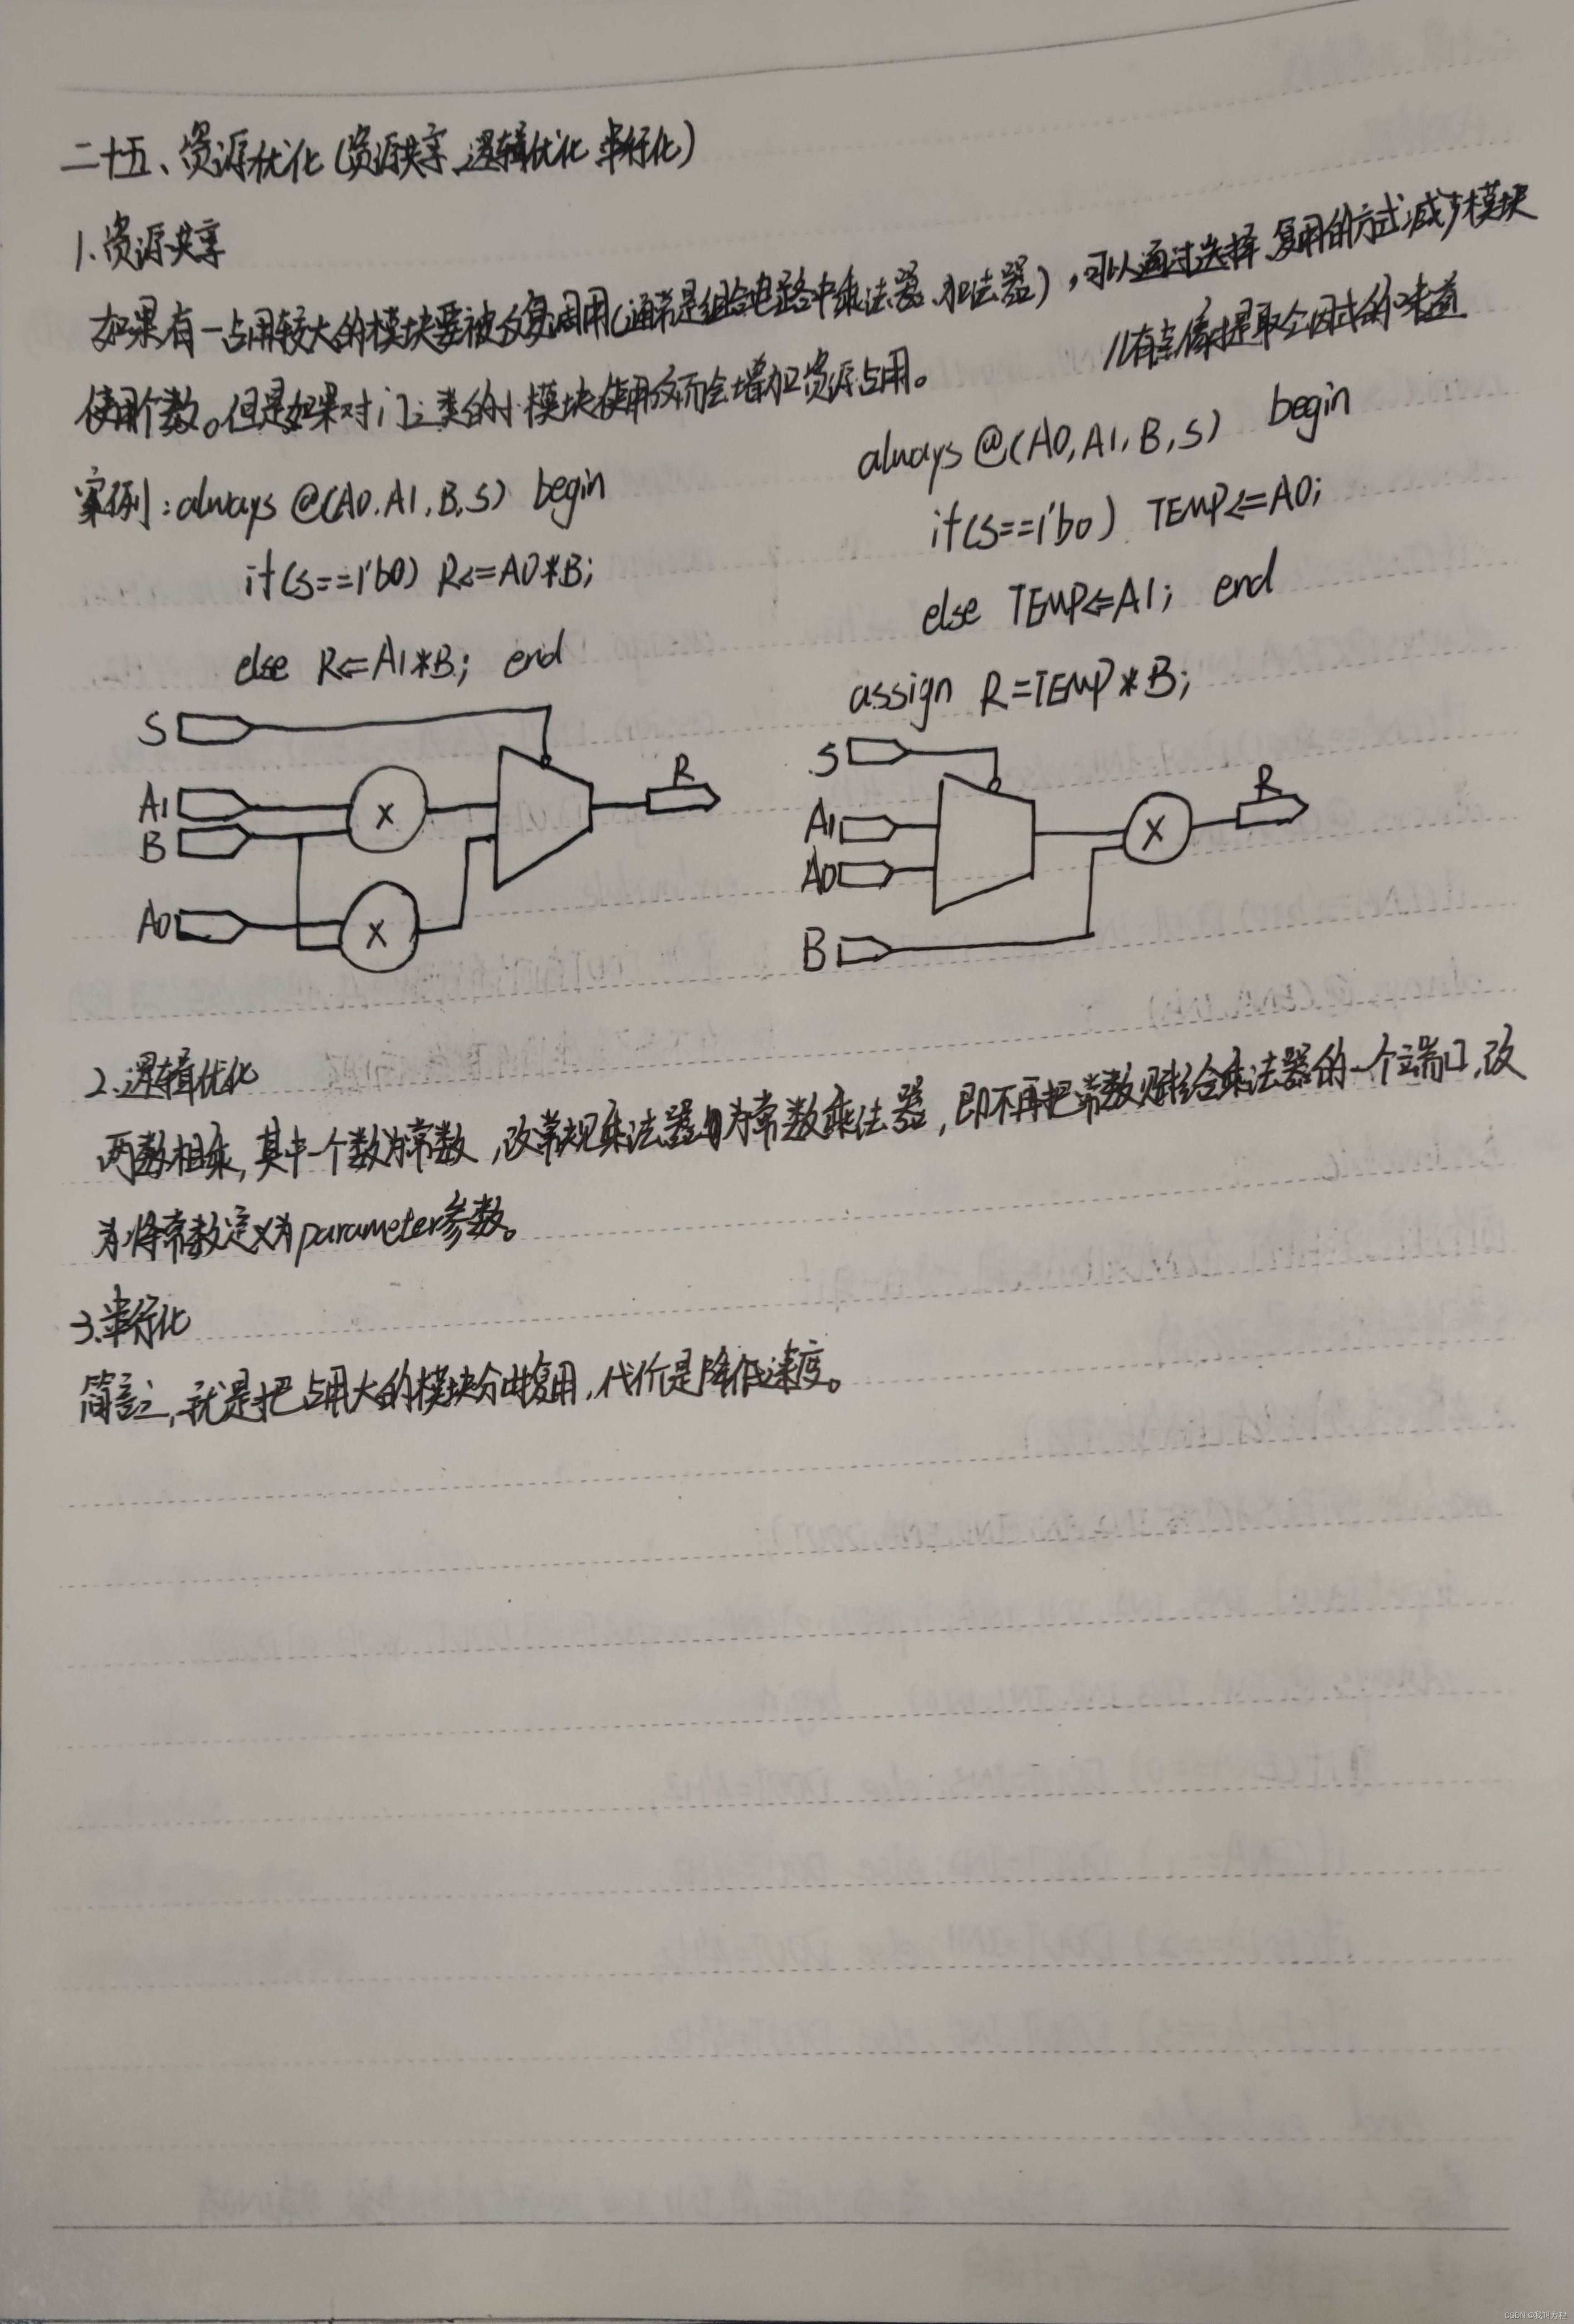 二十五、资源优化(资源共享、逻辑优化、串行化)
1.资源共享
如果有一占用较大的模块要被反复调用(通常是组合电路中乘法器、加法器),可以通过选择、复用的方式减少模块
使用个数。但是如果对门之类的小模块使用反而会增加资源占用。
//有点像提取公因式的味道
案例:always @(A0,A1,B,S) begin
if(S==1'b0) R<=A0*B;
else R<=A1*B; end
always @(A0,A1,B,S) begin
if(S==1'b0) TEMP<=A0;
else TEMP<=A1; end
assign R=TEMP*B;
S
A1
B
A0
×
×
R
S
A1
A0
B
×
R
2.逻辑优化
两数相乘,其中一个数为常数,改常规乘法器为常数乘法器,即不再把常数赋给乘法器的一个端口,改
为将常数定义为parameter参数。
3.串行化
简言之,就是把占用大的模块分时复用,代价是降低速度。
CSDN @我叫方程